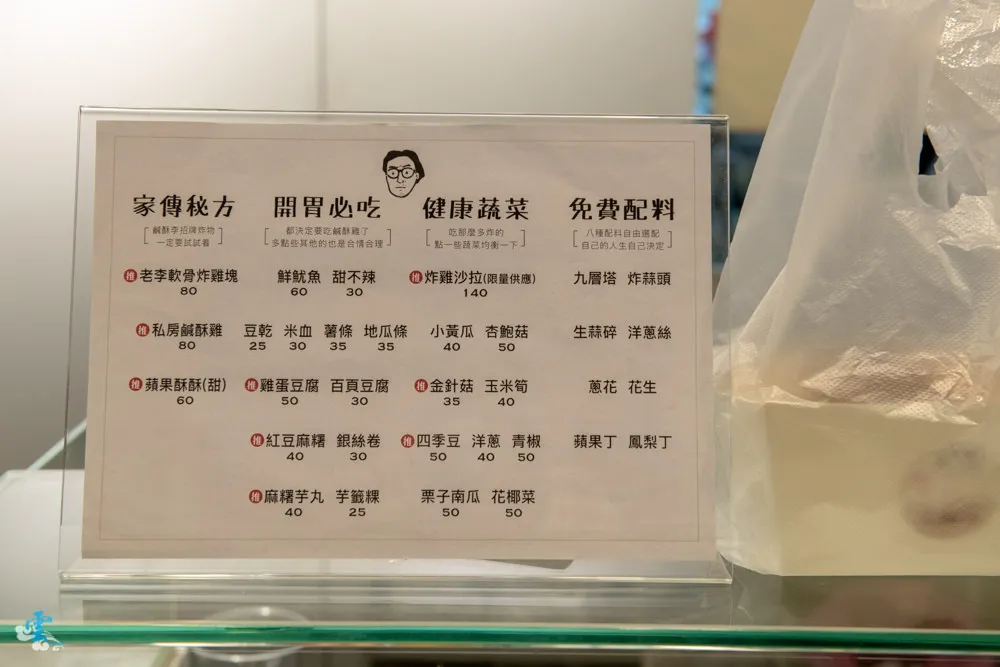 家傳秘方
鹹酥李招牌炸物
一定要試試看
推 老李軟骨炸雞塊
80
推 私房鹹酥雞
80
推 蘋果酥酥(甜)
60
開胃必吃
都決定要吃鹹酥雞了
多點些其他的也是合情合理
鮮魷魚 甜不辣
60 30
豆乾 米血 薯條 地瓜條
25 30 35 35
推 雞蛋豆腐 百頁豆腐
50 30
推 紅豆麻糬 銀絲卷
40 30
推 麻糬芋丸 芋籤粿
40 25
健康蔬菜
吃那麼多炸的
點一些蔬菜均衡一下
推 炸雞沙拉(限量供應)
140
小黃瓜 杏鮑菇
40 50
推 金針菇 玉米筍
35 40
推 四季豆 洋蔥 青椒
50 40 50
栗子南瓜 花椰菜
50 50
免費配料
八種配料自由選配
自己的人生自己決定
九層塔 炸蒜頭
生蒜碎 洋蔥絲
蔥花 花生
蘋果丁 鳳梨丁
雲